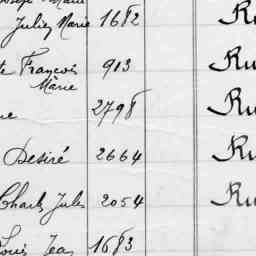 Juliez Marie 1682 Ru
te François 913 Ru
Marie
ne 2798 Ru
Desiré 2664 Ru
Charles Jules 2054 Ru
Louis Jean 1683